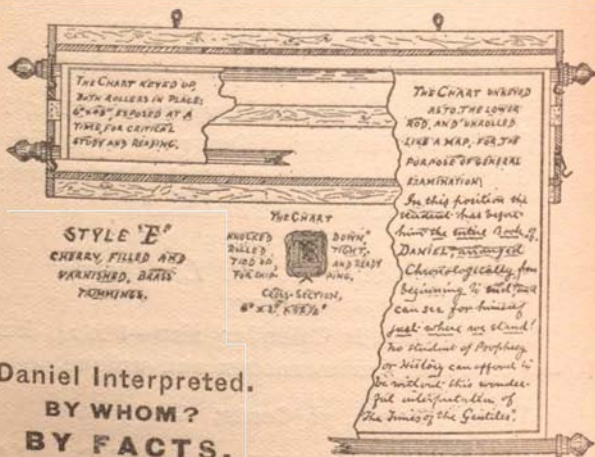 THE CHART KEYED UP,
BOTH ROLLERS IN PLACE;
6"x48", EXPOSED AT A
TIME, FOR CRITICAL
STUDY AND READING.
THE CHART UNKEYED
AS TO THE LOWER
ROD, AND UNROLLED
LIKE A MAP, FOR THE
PURPOSE OF GENERAL
EXAMINATION;
In this position the
student has before
him the entire Book of
DANIEL arranged
Chronologically, from
beginning to end, and
can see for himself
just where we stand!
No student of Prophecy
or History can afford to
be without this wonder-
ful interpretation of
"The Times of the Gentiles".
STYLE "E"
CHERRY, FILLED AND
VARNISHED, BRASS
TRIMMINGS.
THE CHART
KNOCKED DOWN"
ROLLED TIGHT,
TIED UP, AND READY
FOR SHIP- PING.
CROSS-SECTION,
Daniel Interpreted.
BY WHOM?
BY FACTS.